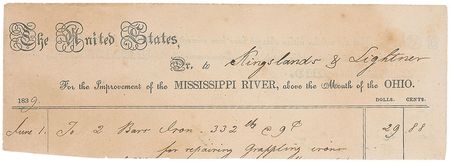 The United States,
Dr. to Kingslands & Lightner
For the Improvement of the MISSISSIPPI RIVER, above the Mouth of the OHIO.
1839. DOLLS. CENTS.
June 1. To 2 Bars Iron. 332 lb @ 9c 29 88
for repairing Grappling irons